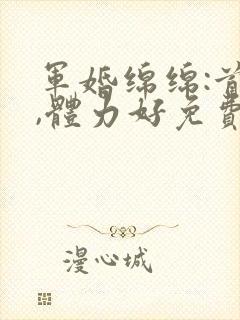 軍婚綿綿:首
,體力好免費
漫心城